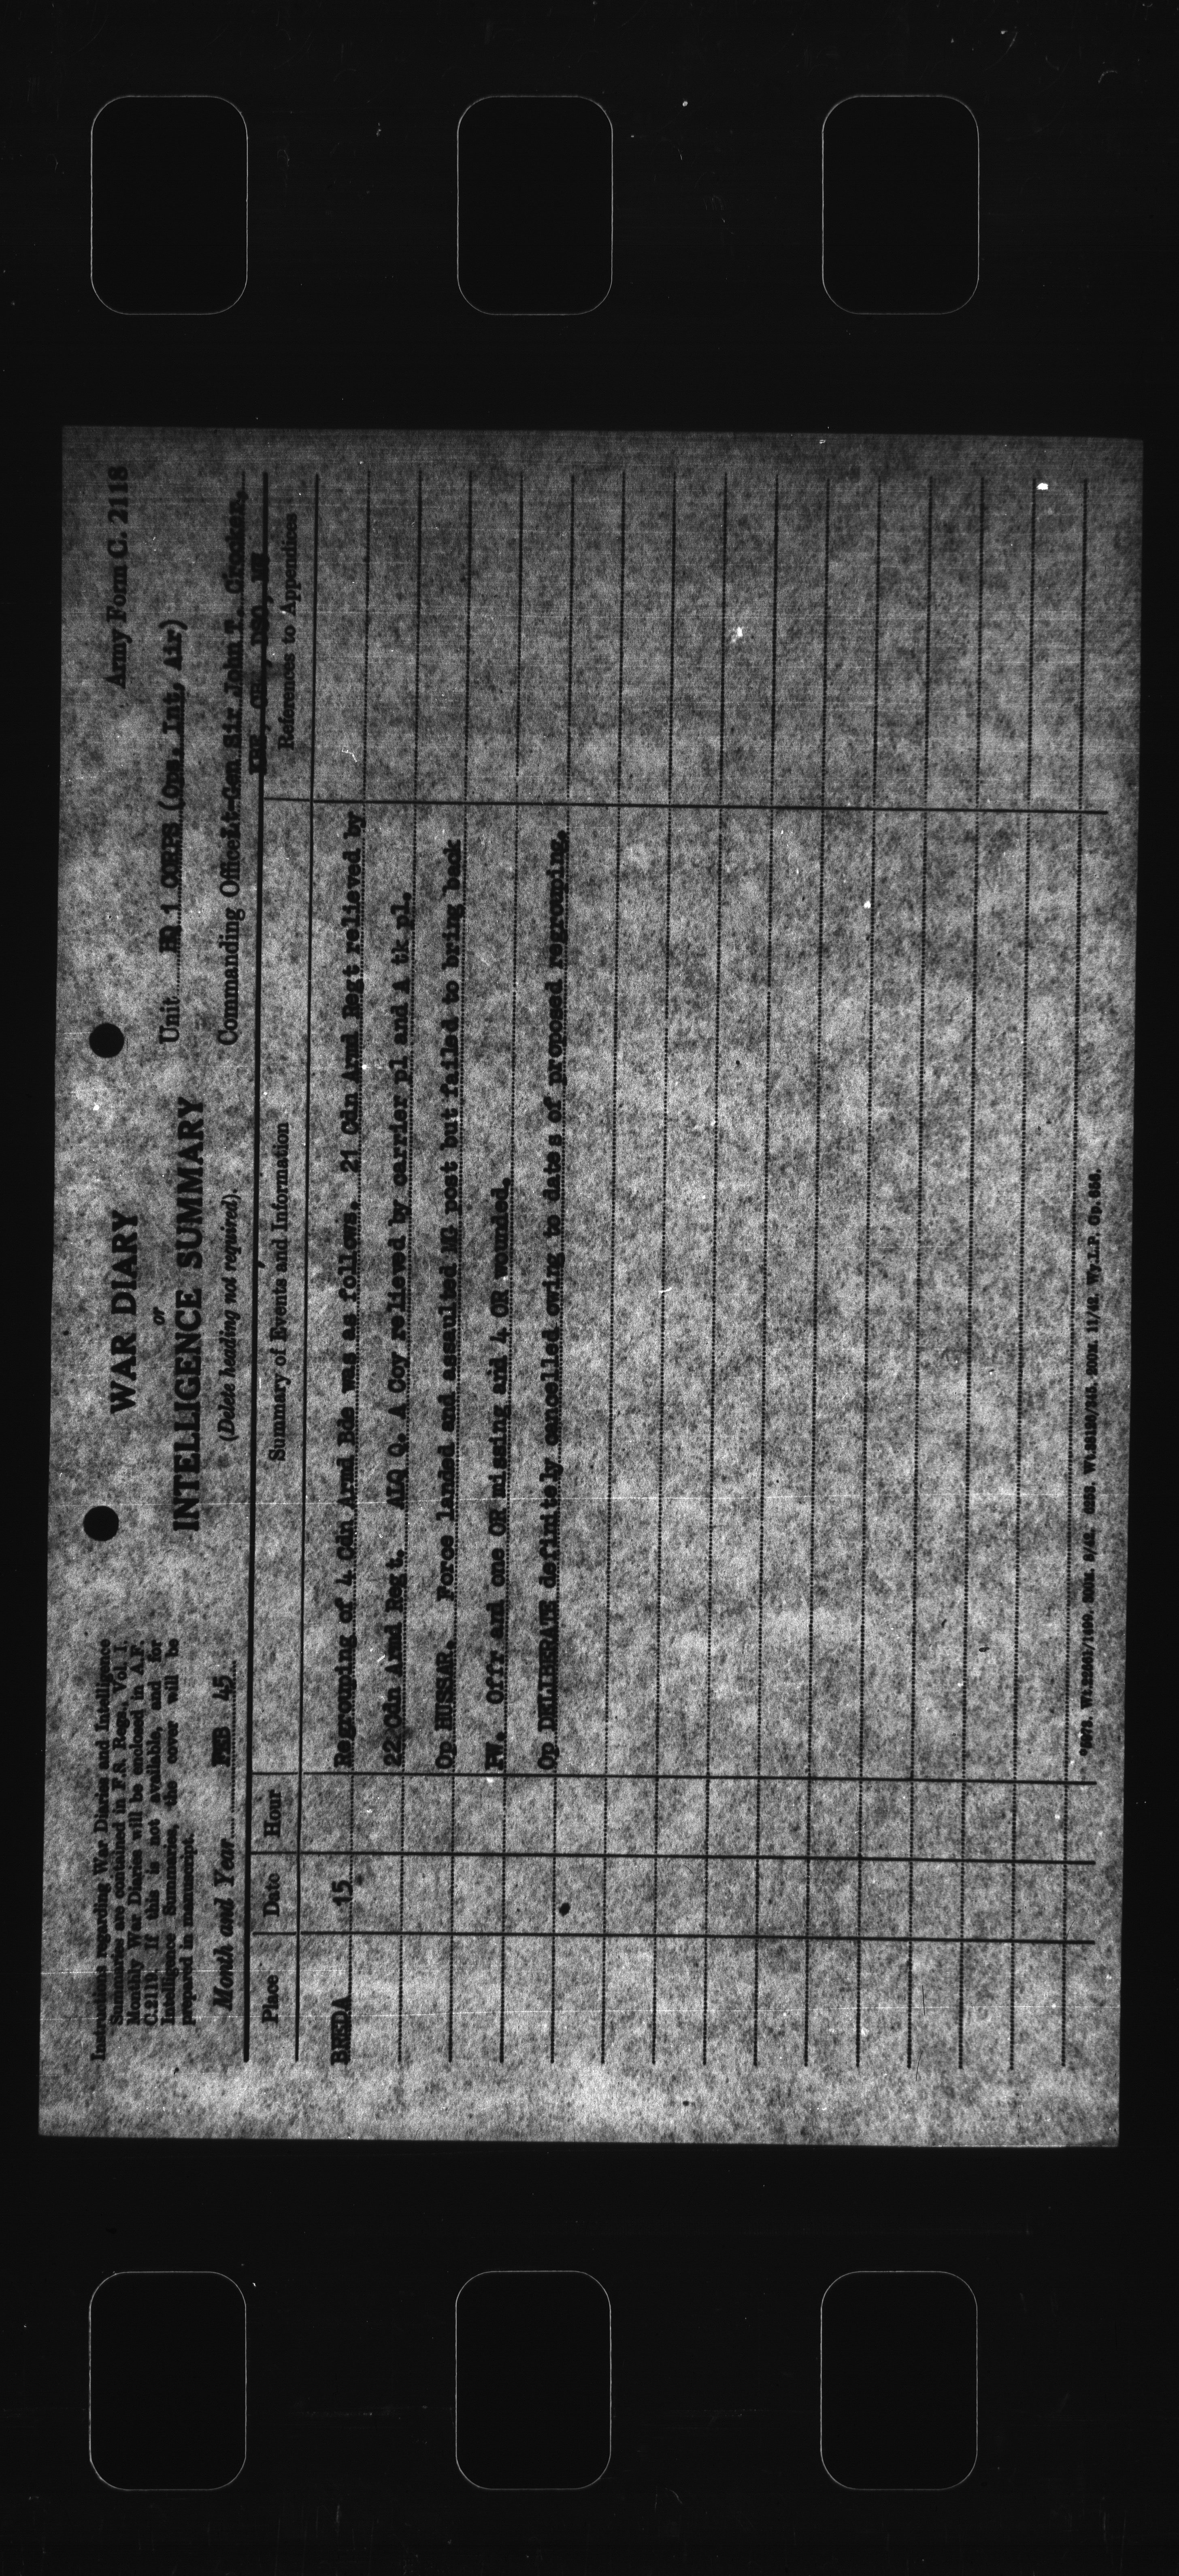 Army Form C. 2118
WAR DIARY
or
INTELLIGENCE SUMMARY
(Delete heading not required).
Instructions regarding War Diaries and Intelligence
Summaries are contained in F.S. Regs., Vol. I.
Monthly War Diaries will be enclosed in A.F.
C.2119. If this is not available, and for
Intelligence Summaries, the cover will be
prepared in manuscript.
Month and Year FEB 45
Unit 1 CORPS (Ops, Int, Air)
Commanding Officer Lt-Gen Sir John T. Crocker,
KBE, CB, DSO, MC
Place Date Hour Summary of Events and Information References to Appendices
BREDA 15 Regrouping of 4 Cdn Armd Bde was as follows. 21 Cdn Armd Regt relieved by
22 Cdn Armd Regt. ALQ Q. A Coy relieved by carrier pl and A tk pl.
Op HUSSAR. Force landed and assaulted MG post but failed to bring back
PW. Offr and one OR missing and 4 OR wounded.
Op DELIBERATE definitely cancelled owing to dates of proposed regrouping.